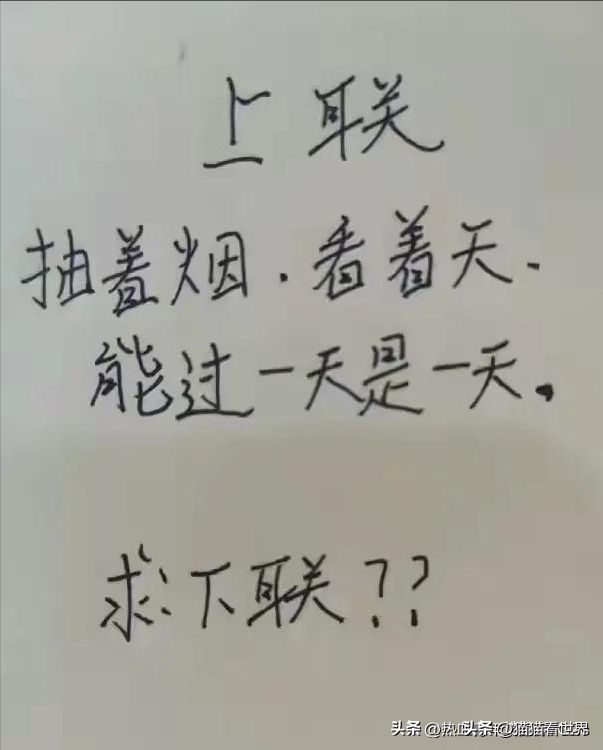 上联
抽着烟.看着天.
能过一天是一天。
求下联??
头条 @猫猫看世界